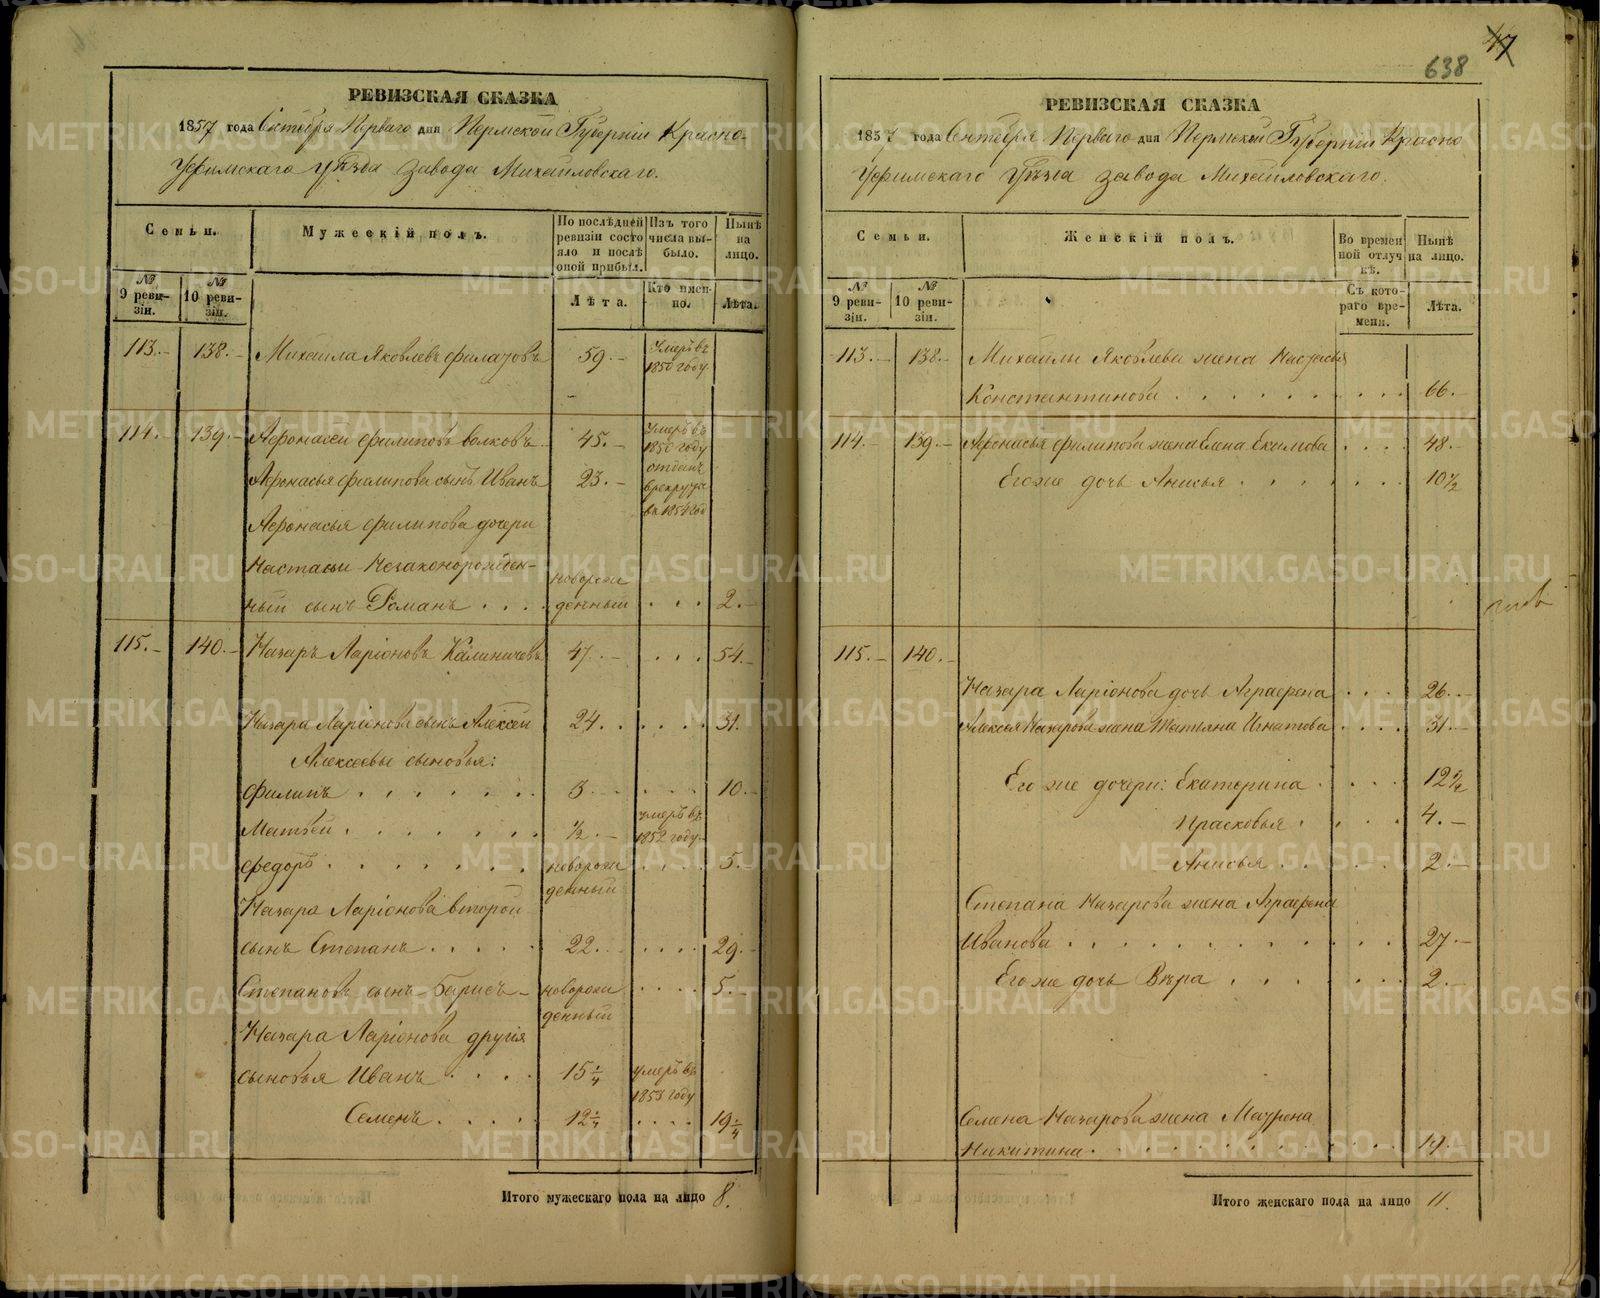 РЕВИЗСКАЯ СКАЗКА
1857 года Октября Перваго дня Пермской Губерніи Красно-
Уфимскаго Уѣзда завода Михайловскаго.
Семьи.
Мужескій полъ.
По послѣдней ревизіи состояло и послѣ оной прибыл.
Изъ того числа выбыло.
Нынѣ на лицо.
№ 9 ревизіи.
№ 10 ревизіи.
Лѣта.
Кто имен-
но.
Лѣта.
113.- 138.- Михаила Яковлевъ Филатовъ 59.- Умеръ въ
1850 году
114.- 139.- Афонасеи Филиповъ Волковъ 45.- Умеръ въ
1850 году
Афонасья Филипова сынъ Иванъ 23.- отданъ
в рекруты
въ 1854 год
Афонасья Филипова дочери
Настасьи Незаконорожден-
ный сынъ Романъ . . . . новорож
денный . . . 2.-
115.- 140.- Назаръ Ларіоновъ Калиничевъ 47.- . . . 54.-
Назара Ларіонова сынъ Алексеи 24. . . . . . 31.
Алексеевы сыновья:
Филипъ . . . . . . . 3.- . . . . 10.-
Матвеи . . . . . . . ½.- умеръ въ
1852 году-
Федоръ . . . . . . . новорож . . . . 5.-
денный
Назара Ларіонова второй
сынъ Степанъ . . . . . 22.- . . . . 29.-
Степановъ сынъ Борисъ - новорож . . . . 5.-
денный
Назара Ларіонова другія
сыновья Иванъ . . . . 15¼ умеръ въ
1853 году
Семенъ . . . . . 12¼ . . . . 19¼
Итого мужескаго пола на лицо 8.
47
638
РЕВИЗСКАЯ СКАЗКА
1857 года Октября Перваго дня Пермской Губерніи Красно
Уфимскаго Уѣзда завода Михайловскаго.
Семьи.
Женскій полъ.
Во времен
ной отлуч
кѣ.
Нынѣ
на лицо.
№ 9 ревизіи.
№ 10 ревизіи.
Съ кото-
раго вре-
мени.
Лѣта.
113.- 138.- Михаилы Яковлева жена Настасья
Константинова . . . . . . . . . . 66.-
114.- 139.- Афонасья Филипова жена Елена Екимова . . . . 48.-
Его же дочь Анисья . . . . . . . 10½
115.- 140.-
Назара Ларіонова дочь Аграфена . . . . 26.-
Алексея Назарова жена Татьяна Игнатова . . . . 31.-
Его же дочери: Екатерина . . . . 12 2/4
Прасковья . . . . 4.-
Анисья . . . . . 2.-
Степана Назарова жена Аграфена
Иванова . . . . . . . . . . . . 27.-
Его же дочь Вѣра . . . . . . . 2.-
Семена Назарова жена Маурена
Никитина . . . . . . . . . . . 19.-
Итого женскаго пола на лицо 11.
METRIKI.GASO-URAL.RU